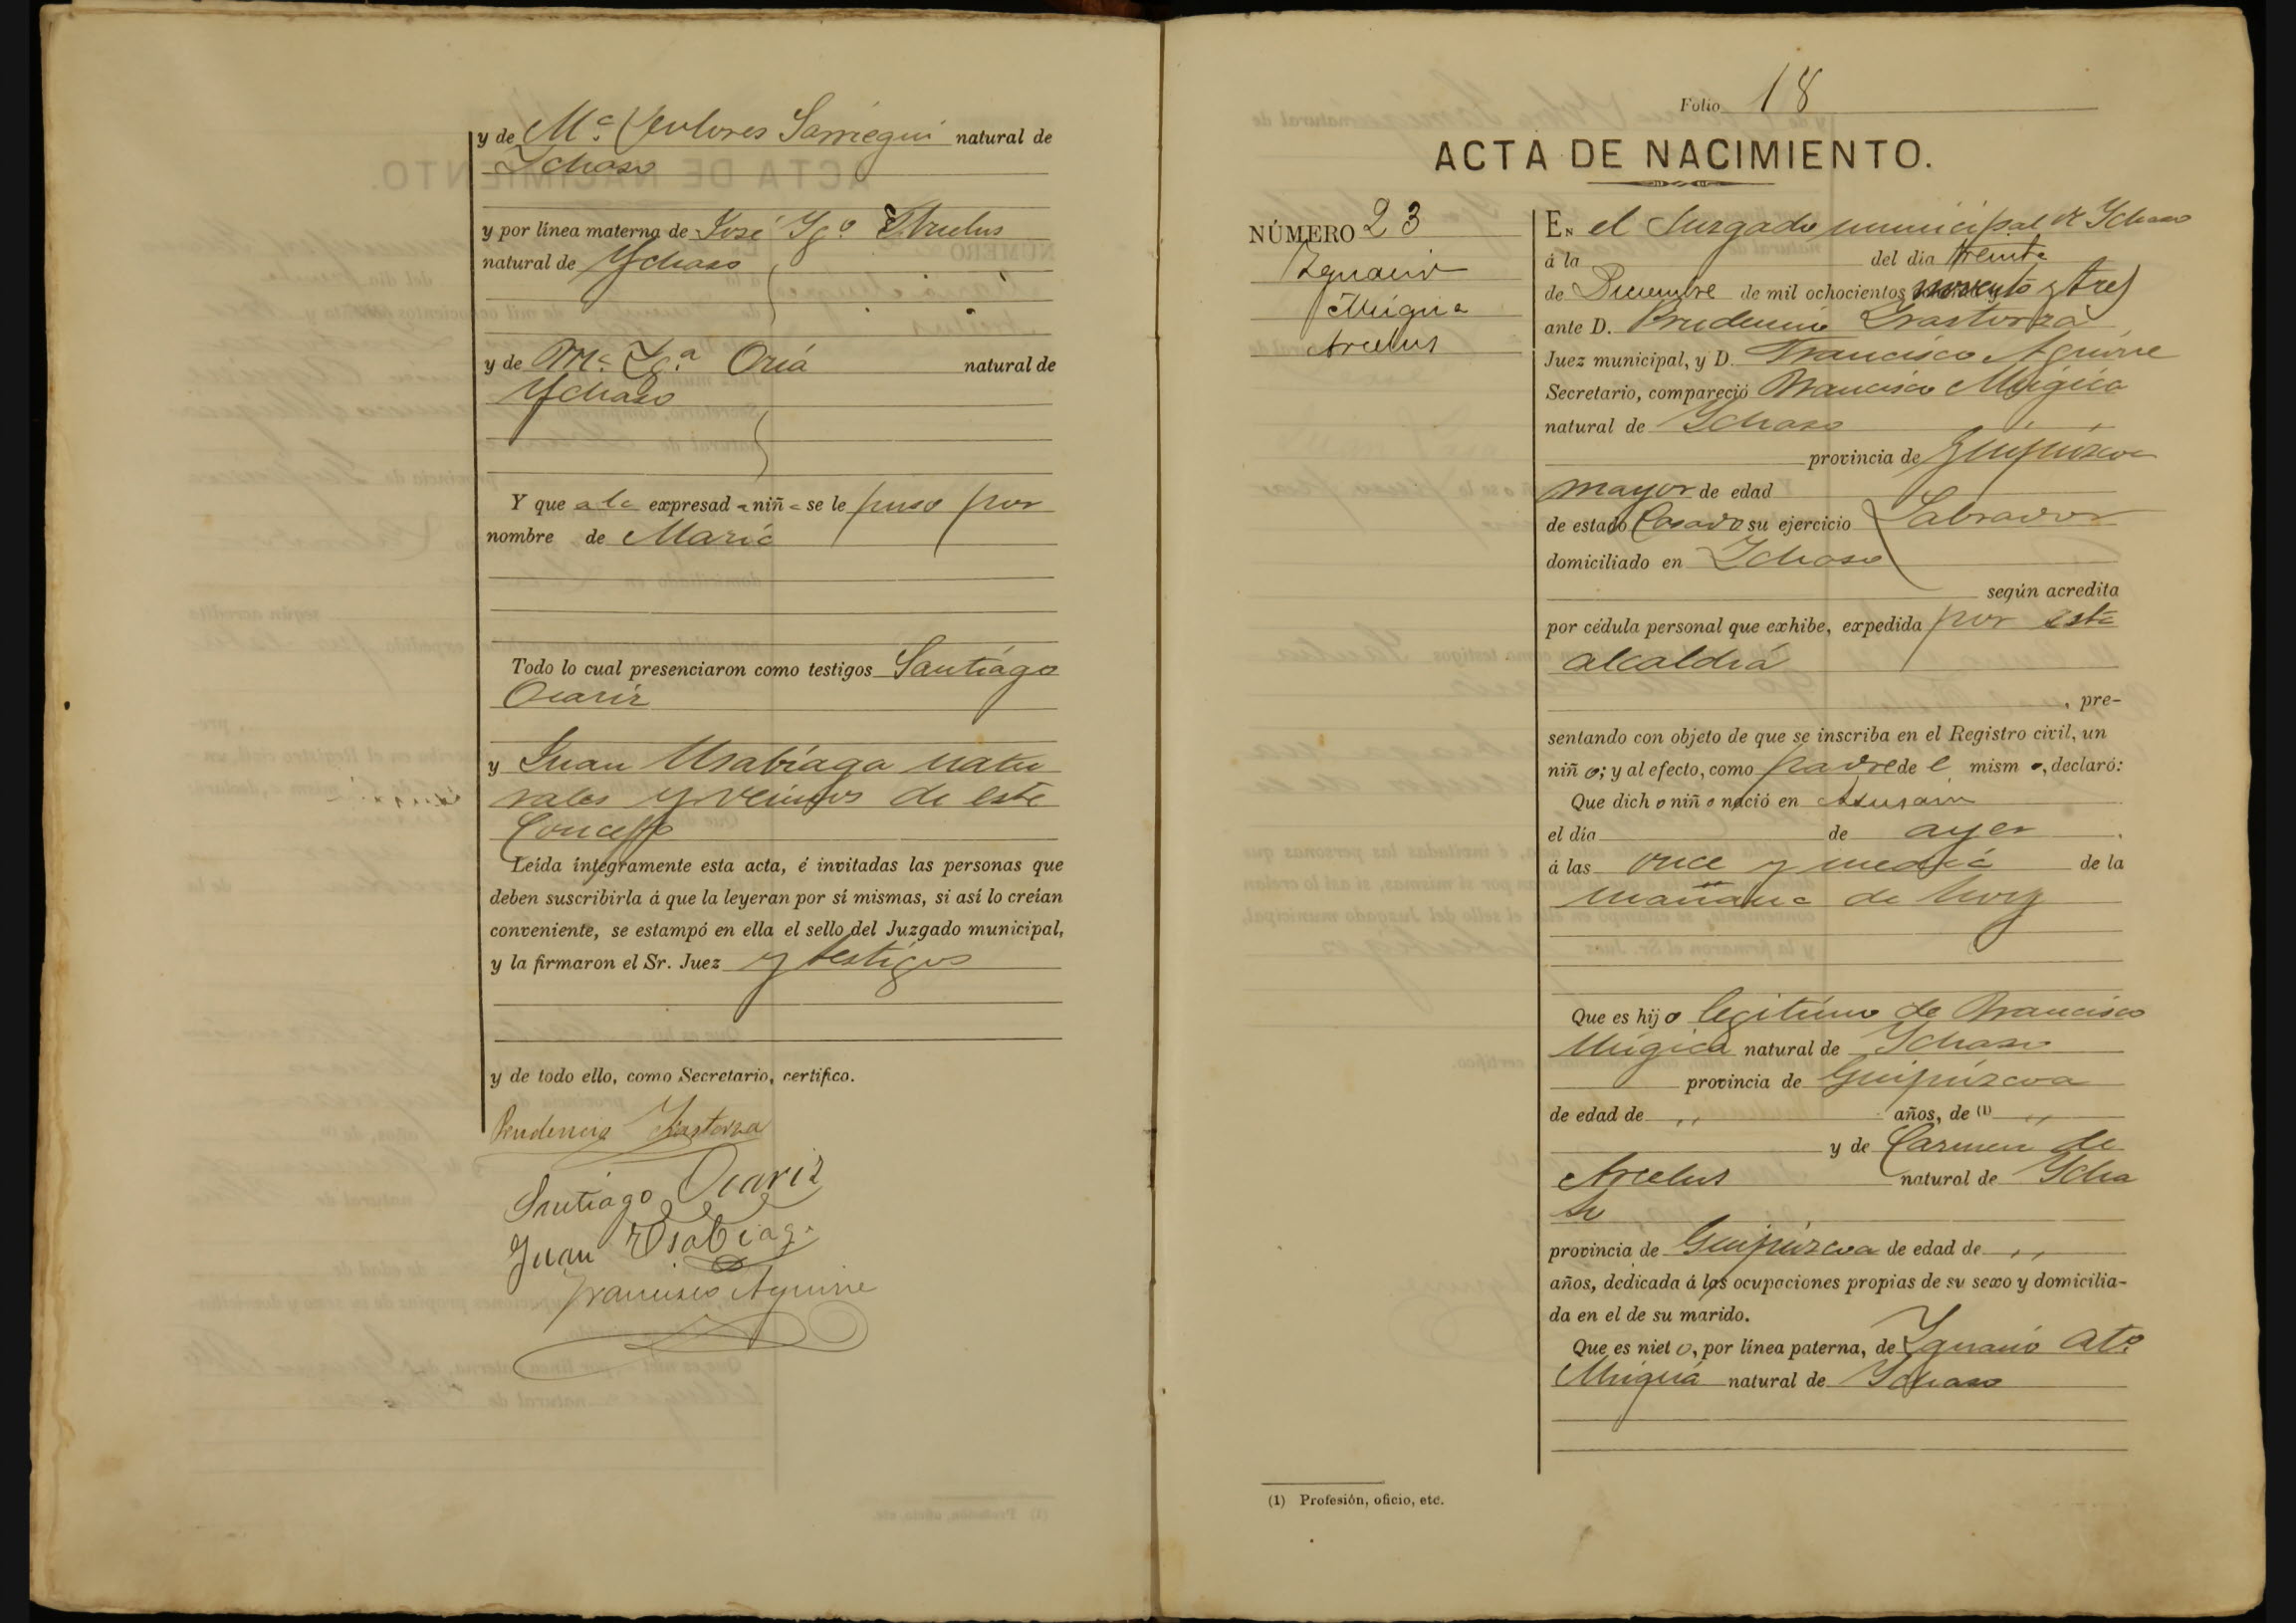 y de Mª Dolores Sarriegui natural de
Ichaso
y por línea materna de José Ygº Arcelus
natural de Ychaso
y de Mª Ygª Oria natural de
Ychaso
Y que a la expresad a niñ a se le puso por
nombre de Maria
Todo lo cual presenciaron como testigos Santiago
Ocariz
y Juan Usabiaga natu
rales y vecinos de este
Concejo
Leída íntegramente esta acta, é invitadas las personas que
deben suscribirla á que la leyeran por sí mismas, si así lo creían
conveniente, se estampó en ella el sello del Juzgado municipal,
y la firmaron el Sr. Juez y testigos
y de todo ello, como Secretario, certifico.
Prudencio Yrastorza
Santiago Ocariz
Juan Usabiaga
Francisco Aguirre
Folio 18
ACTA DE NACIMIENTO.
NÚMERO 23
Ygnacio
Múgica
Arcelus
En el Juzgado municipal de Ychaso
á la del día treinta
de Diciembre de mil ochocientos noventa y tres
ante D. Prudencio Yrastorza
Juez municipal, y D. Francisco Aguirre
Secretario, compareció Francisco Múgica
natural de Ychaso
provincia de Guipúzcoa
mayor de edad
de estado Casado su ejercicio Labrador
domiciliado en Ichaso
según acredita
por cédula personal que exhibe, expedida por esta
alcaldia
, pre-
sentando con objeto de que se inscriba en el Registro civil, un
niñ o; y al efecto, como padre de l mism o, declaró:
Que dich o niñ o nació en
el día de ayer
á las once y media de la
mañana de hoy
Que es hij o legitimo de Francisco
Múgica natural de Ychaso
provincia de Guipúzcoa
de edad de ,, años, de (1) ,,
y de Carmen de
Arcelus natural de Ycha
so
provincia de Guipúzcoa de edad de ,,
años, dedicada á las ocupaciones propias de su sexo y domicilia-
da en el de su marido.
Que es niet o, por línea paterna, de Ygnacio Atº
Múgica natural de Ychaso
(1) Profesión, oficio, etc.